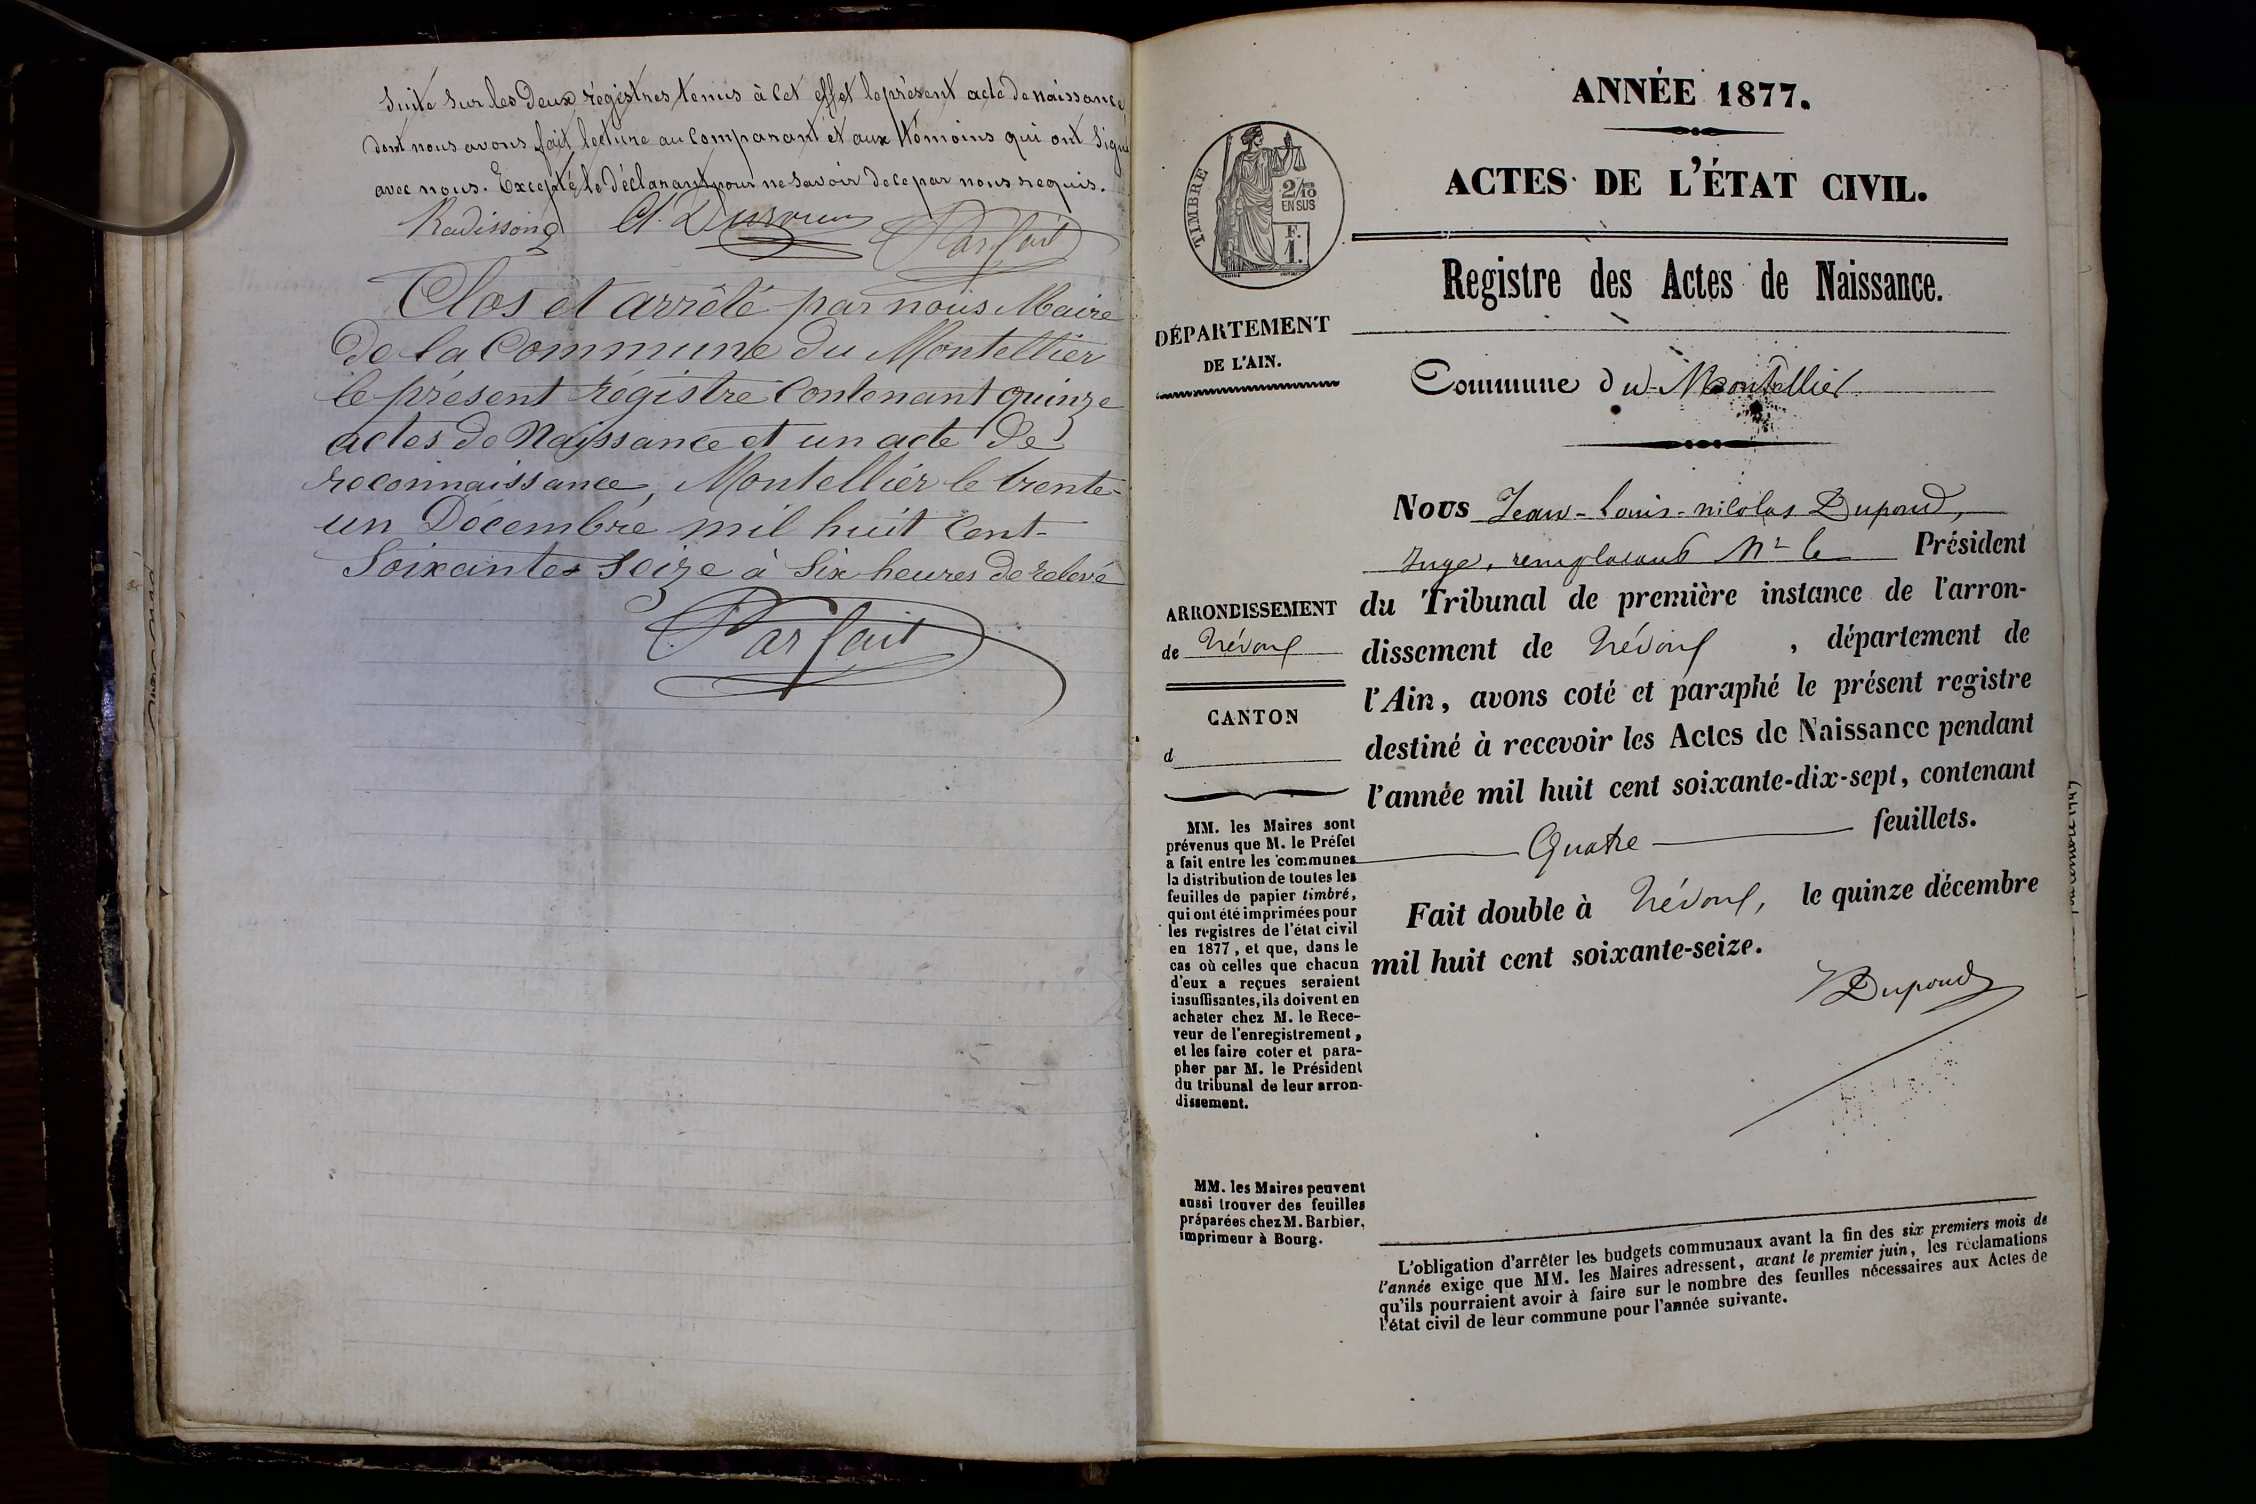 Suite sur les deux régistres tenus à cet effet le présent acte de naissance
dont nous avons fait lecture au comparant et aux témoins qui ont signé
avec nous. Excepté le déclarant pour ne savoir de ce par nous requis.
Radisson
Parfait
Clos et arrêté par nous Maire
de la Commune du Montellier
le présent régistre contenant quinze
actes de Naissance et un acte de
reconnaissance, Montellier le trente-
un Décembre mil huit cent-
soixante seize à six heures de relevé
Parfait
ANNÉE 1877.
ACTES DE L'ÉTAT CIVIL.
TIMBRE
2/10
EN SUS
F.
1.
Registre des Actes de Naissance.
DÉPARTEMENT
DE L'AIN.
Commune du Montellier
Nous Jean-Louis-nicolas Dupoud,
Juge, remplacant Mr le Président
du Tribunal de première instance de l'arron-
dissement de Trévoux, département de
l'Ain, avons coté et paraphé le présent registre
destiné à recevoir les Actes de Naissance pendant
l'année mil huit cent soixante-dix-sept, contenant
Quatre feuillets.
Fait double à Trévoux, le quinze décembre
mil huit cent soixante-seize.
Dupoud
ARRONDISSEMENT
de Trévoux
CANTON
d
MM. les Maires sont
prévenus que M. le Préfet
a fait entre les communes
la distribution de toutes les
feuilles de papier timbré,
qui ont été imprimées pour
les registres de l'état civil
en 1877, et que, dans le
cas où celles que chacun
d'eux a reçues seraient
insuffisantes, ils doivent en
acheter chez M. le Rece-
veur de l'enregistrement,
et les faire coter et para-
pher par M. le Président
du tribunal de leur arron-
dissement.
MM. les Maires peuvent
aussi trouver des feuilles
préparées chez M. Barbier,
imprimeur à Bourg.
L'obligation d'arrêter les budgets communaux avant la fin des six premiers mois de
l'année exige que MM. les Maires adressent, avant le premier juin, les réclamations
qu'ils pourraient avoir à faire sur le nombre des feuilles nécessaires aux Actes de
l'état civil de leur commune pour l'année suivante.